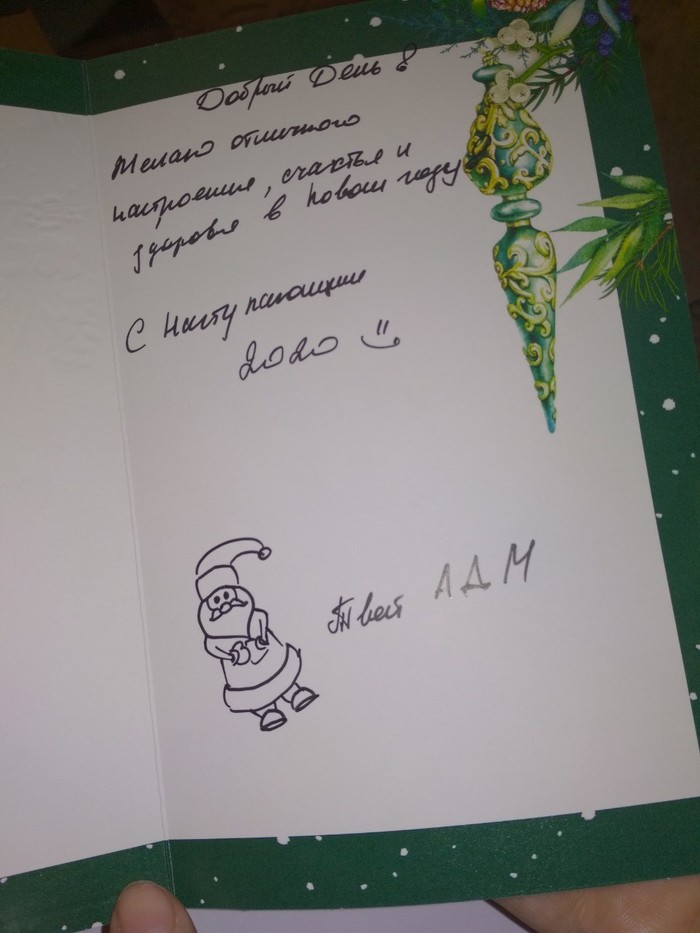 Добрый День!
Желаю отличного
настроения, счастья и
здоровья в новом году
С Наступающим
2020
Твой АДМ